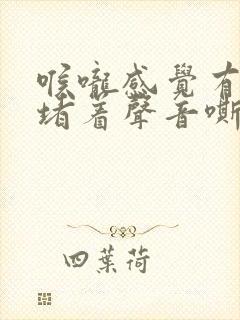 喉嚨感覺有
堵着聲音嘶
四葉荷